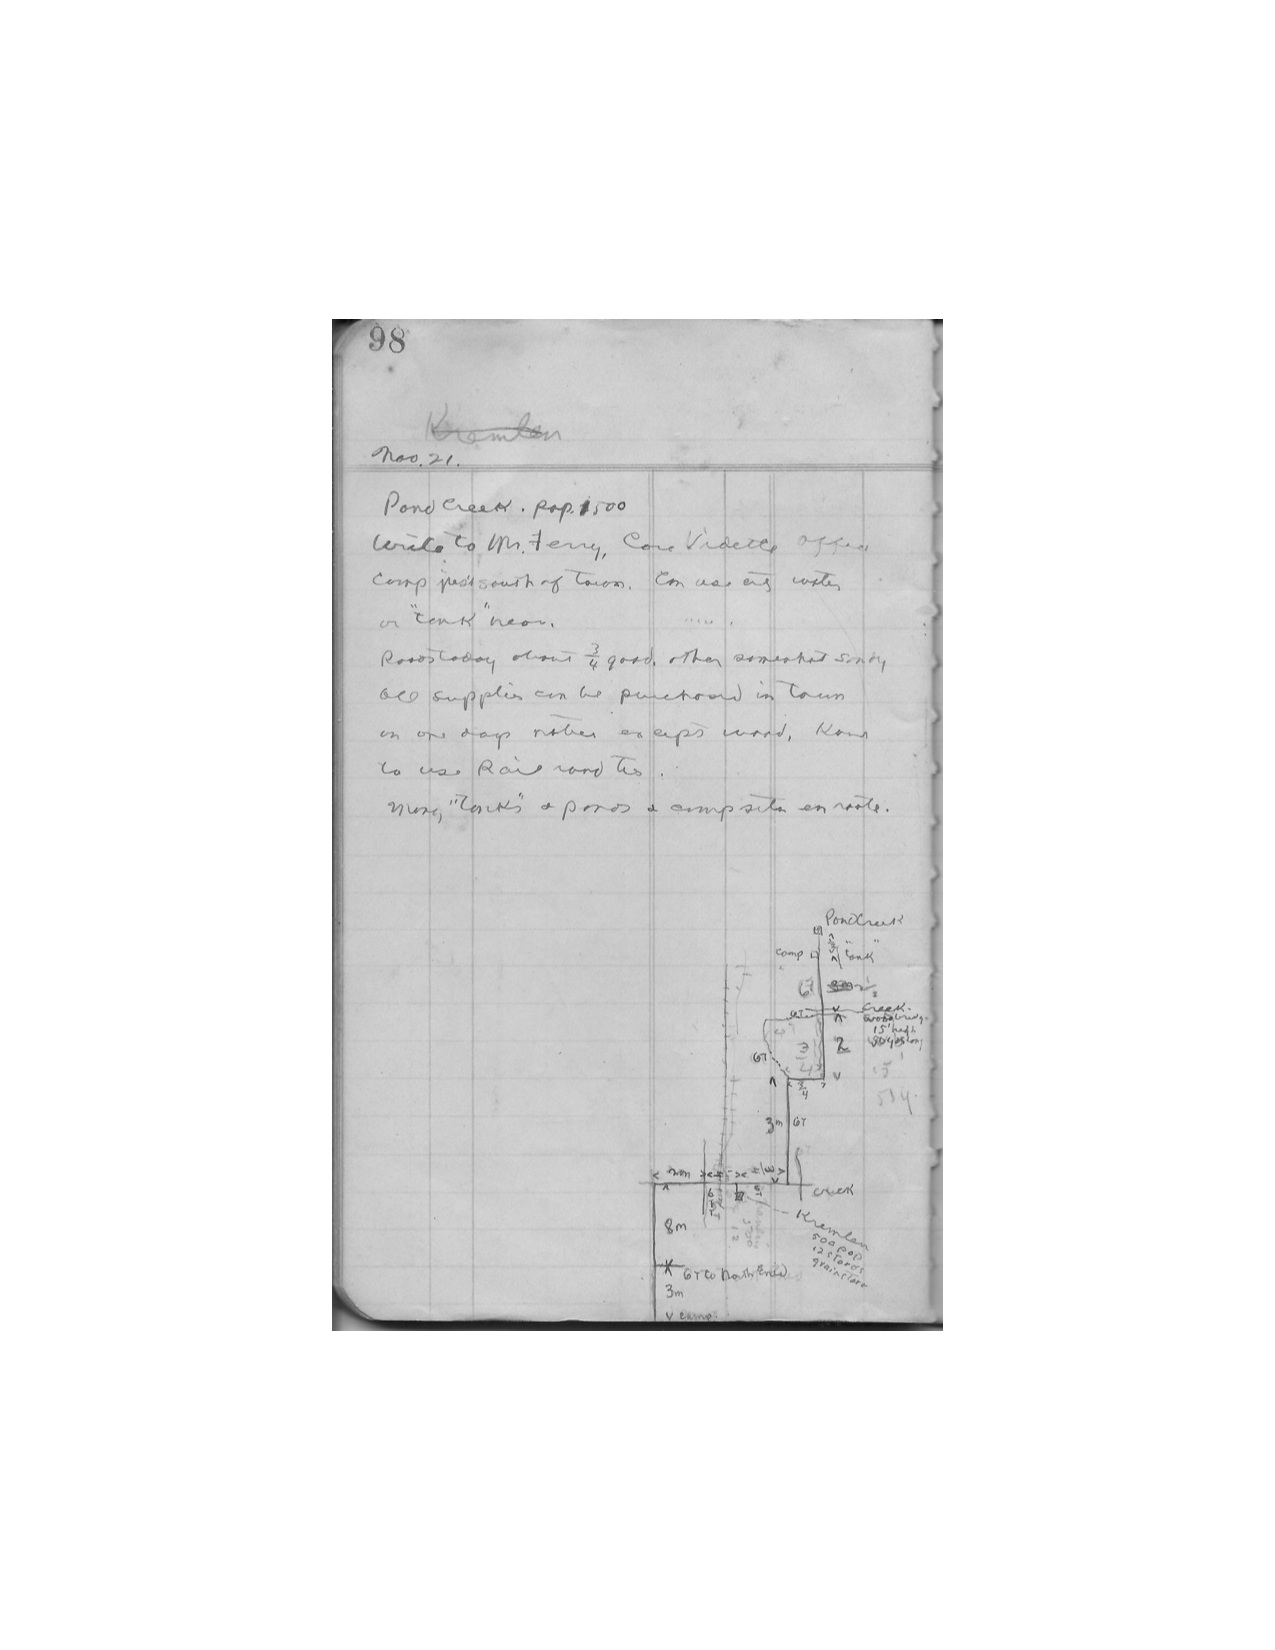 98
Kremlin
Nov. 21.
Pond Creek. pop. 1500
Write to Mr. Ferry, Care Vidette office
Camp just south of town. Can use city water
or "tank" near.
Roads today about 3/4 good, other somewhat sandy
All supplies can be purchased in town
on one days notice except wood. Have
to use Rail road ties.
Many "tanks" & ponds & camp sites en route.
Pond Creek
camp "Tank"
GT
GT Creek.
Wood bridge
15' high
2
3/4
GT
3/4
3m GT
2m
Creek
8m
Kremlin
500 pop
12 stores
GT to North Enid
3m
camp